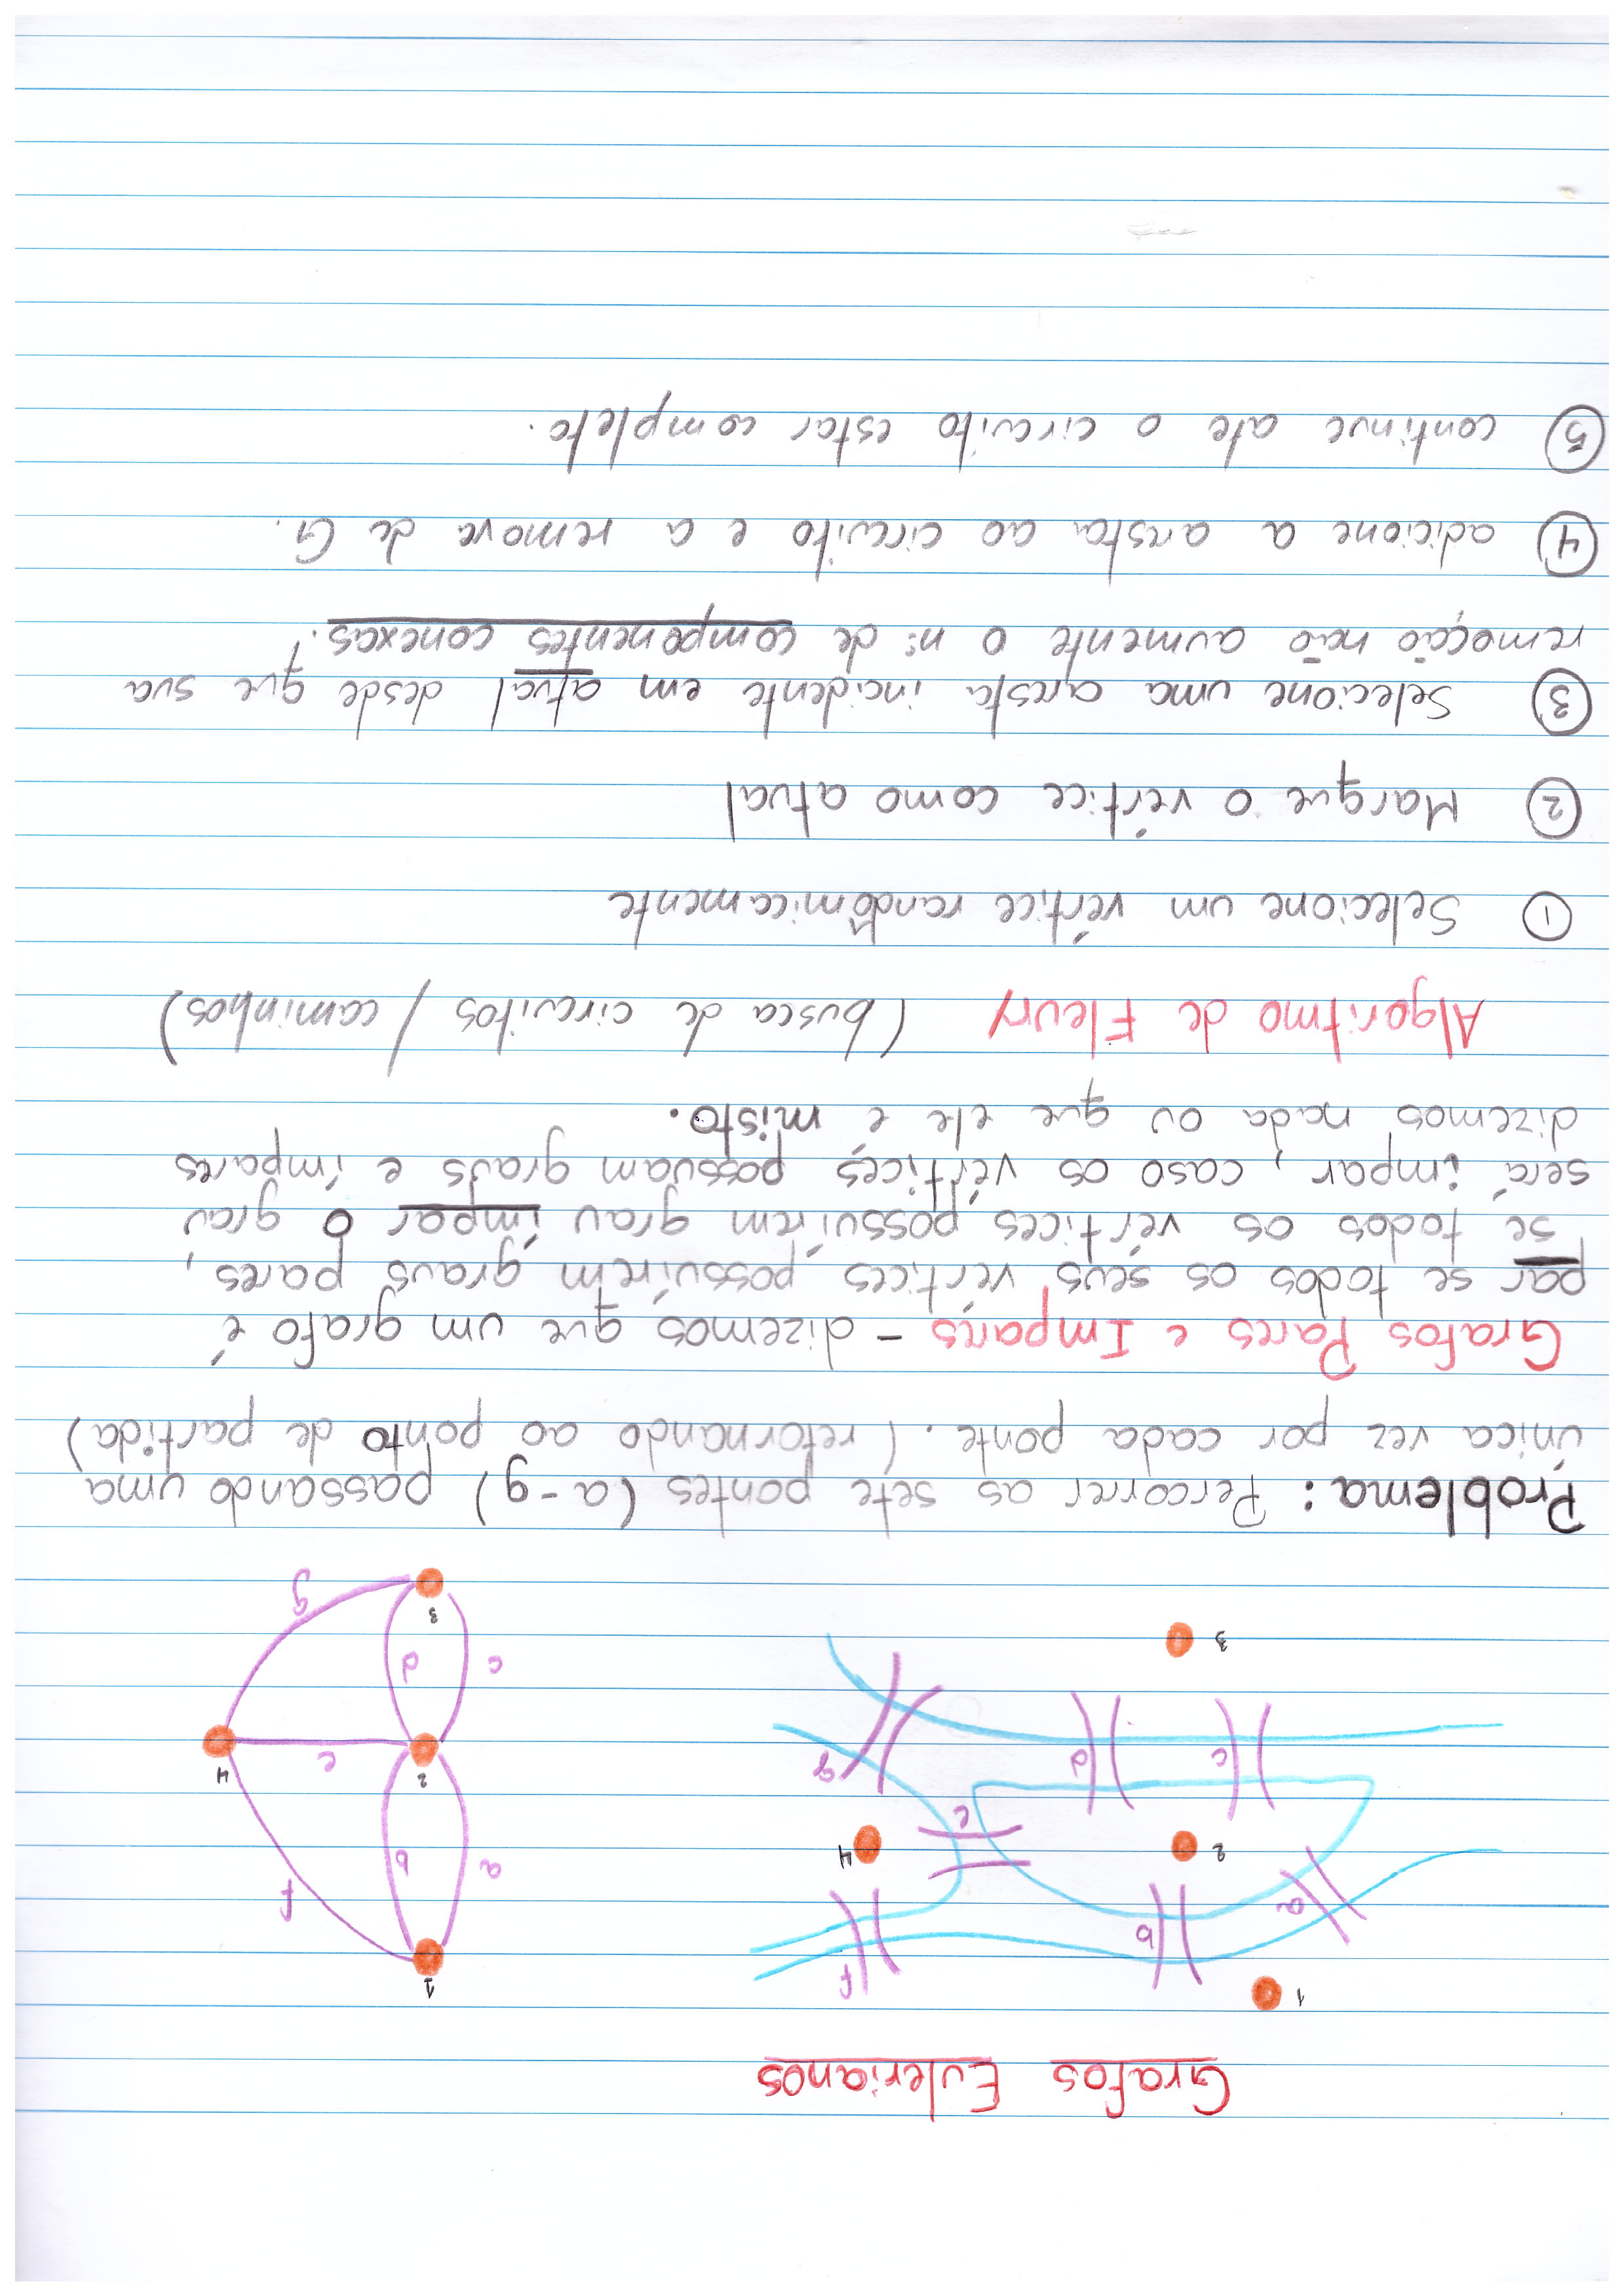 Grafos Eulerianos
1
a
b
f
2
4
e
c
d
g
3
1
a
b
f
2
e
4
c
d
3
g
Problema: Percorrer as sete pontes (a-g) passando uma
única vez por cada ponte. (retornando ao ponto de partida)
Grafos Pares e Impares - dizemos que um grafo é
par se todos os seus vértices possuírem graus pares,
se todos os vértices possuírem grau ímpar o grau
será impar, caso os vértices possuam graus e ímpares
dizemos nada ou que ele é misto.
Algoritmo de Fleury (busca de circuitos / caminhos)
① Selecione um vértice randômicamente
② Marque o vértice como atual
③ Selecione uma aresta incidente em atual desde que sua
remoção não aumente o nº de componentes conexas.
④ adicione a aresta ao circuito e a remova de G.
⑤ continue ate o circuito estar completo.